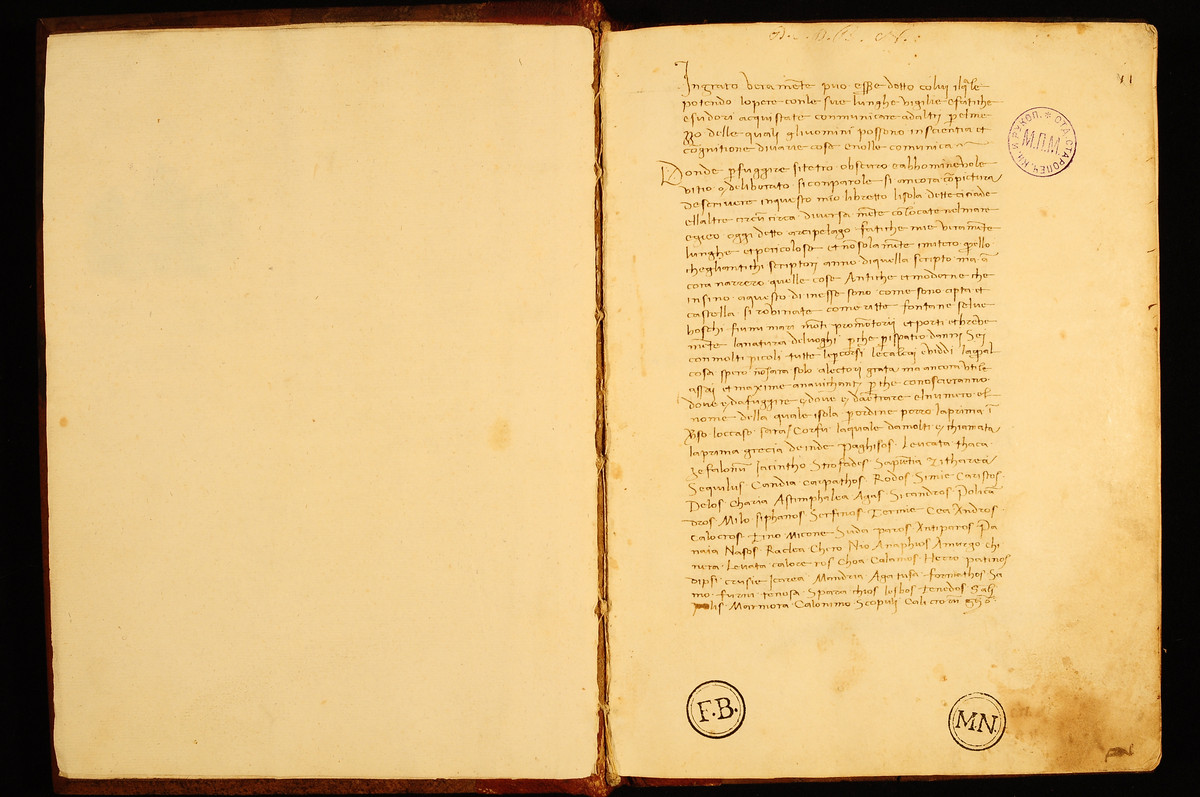 11
Ingrato vera mẽte puo esse detto colui il q̃le
potendo lopere conle sue lunghe vigilie efatiche
esudori acquistate conmunicare adaltrj p̃ elme
zzo delle quali glivomini possono inscientia et
cõgnitione divarie cose enolle comunica
Donde p̃ fuggire sitetro obscuro eabbominevole
vitio o deliberato siconparole si ancora cõ pictura
descrivere inquesto mio libretto lisola dette ciclade
ellaltre circũ circa diversa mẽte cõlocate nelmare
egieo oggi detto arcipelago fatiche mie vera mẽte
lunghe et pericolose et nõ sola mẽte imitero quello
che gliantichi scriptorj anno diquella scripto ma ã
cora narrero quelle cose Antiche et moderne che
insino aquesto di inesse sono come sono cipta et
castella si rovinate come ritte fontane selve
boschi fiumi mari mõti promõtorii et porti et breve
mẽte lanatura deluoghi p̃ che p̃ ispatio dannj sei
conmolti picoli tutte le cercai eviddi laqual
cosa spero nõ sara solo alectorj grata ma ancora utile
assai et maxime anavichantj p̃ che conosceranno
dove e dafuggire e dove e da ẽtrare elnumero el
nome della quale isola p̃ ordine porro laprima ĩ
verso loccaso sara Corfu laquale damolti e chiamata
laprima grecia deinde Paghisos Leucata Thaca
zefalonia Iacintho Strofades Sapiẽtia Citharea
Sequilus Candia Carpathos Rodos Simie Caristos
Delos Charia Astimphalea Agas Sicandros Policã
dros Milo Siphanos Serfinos Termie Cea Andros
Caloeros Tino Micone Suda Paros Antiparos Pa
naia Nasos Raclea Chero Nio Anaphios Amurgo Chi
nera Levata caloe ros Choa Calamos Herro Patinos
dipsi crusie Icarea Mandria Agatusa formachos Sa
mo furni tenosa Spara chios lesbos tenedos Gali
polis Marmora Calonimo Scopulj Calicrõ
M.П.М.
ОТД. СТАРОПЕЧ. КН. И РУКОП.
F.B.
M.N.